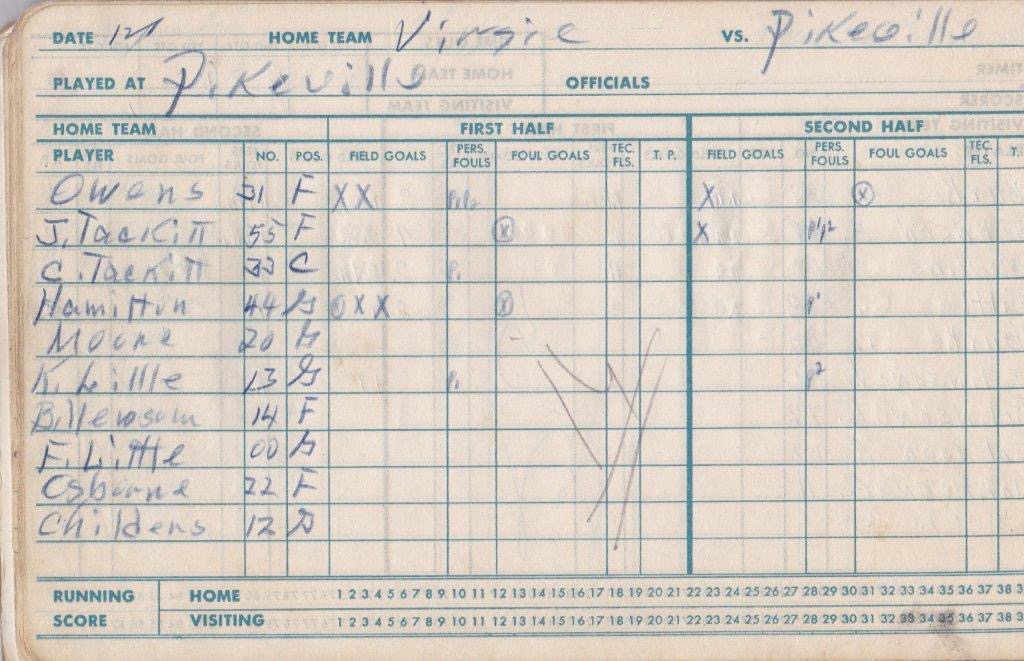 DATE 12/ HOME TEAM Virgie VS. Pikeville
PLAYED AT Pikeville OFFICIALS
HOME TEAM FIRST HALF SECOND HALF
PLAYER NO. POS. FIELD GOALS PERS. FOULS FOUL GOALS TEC. FLS. T. P. FIELD GOALS PERS. FOULS FOUL GOALS TEC. FLS. T.
Owens 31 F X X P1P2 X X
J. Tackitt 55 F X X P1P2
C. Tackitt 33 C P1
Hamilton 44 G O X X X P1
Moore 20 G
K. Little 13 G P1 P2
14 F
F. Little 00 G
Osborne 22 F
Childers 12 G
RUNNING HOME 1 2 3 4 5 6 7 8 9 10 11 12 13 14 15 16 17 18 19 20 21 22 23 24 25 26 27 28 29 30 31 32 33 34 35 36 37 38 3
SCORE VISITING 1 2 3 4 5 6 7 8 9 10 11 12 13 14 15 16 17 18 19 20 21 22 23 24 25 26 27 28 29 30 31 32 33 34 35 36 37 38 3